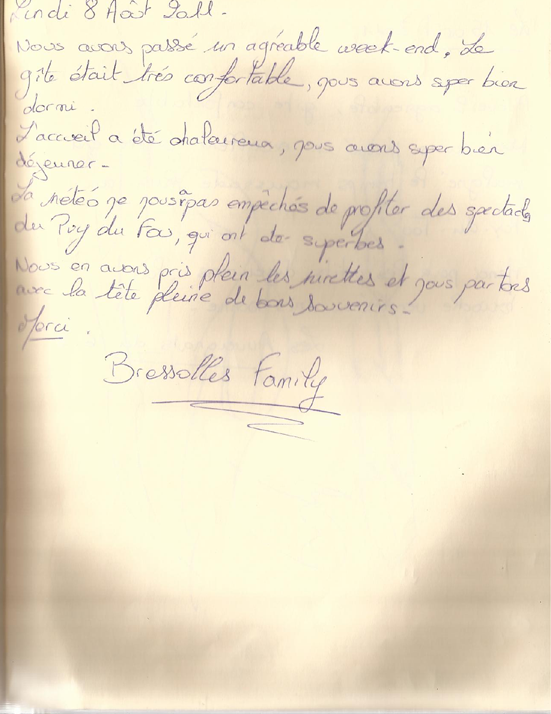 Lundi 8 Août 2011.
Nous avons passé un agréable week-end. Le
gîte était très confortable, nous avons super bien
dormi.
L'accueil a été chaleureux, nous avons super bien
déjeuner.
La météo ne nous a pas empêchés de profiter des spectacles
du Puy du Fou, qui ont été superbes.
Nous en avons pris plein les mirettes et nous partons
avec la tête pleine de bons souvenirs.
Merci.
Bressolles Family